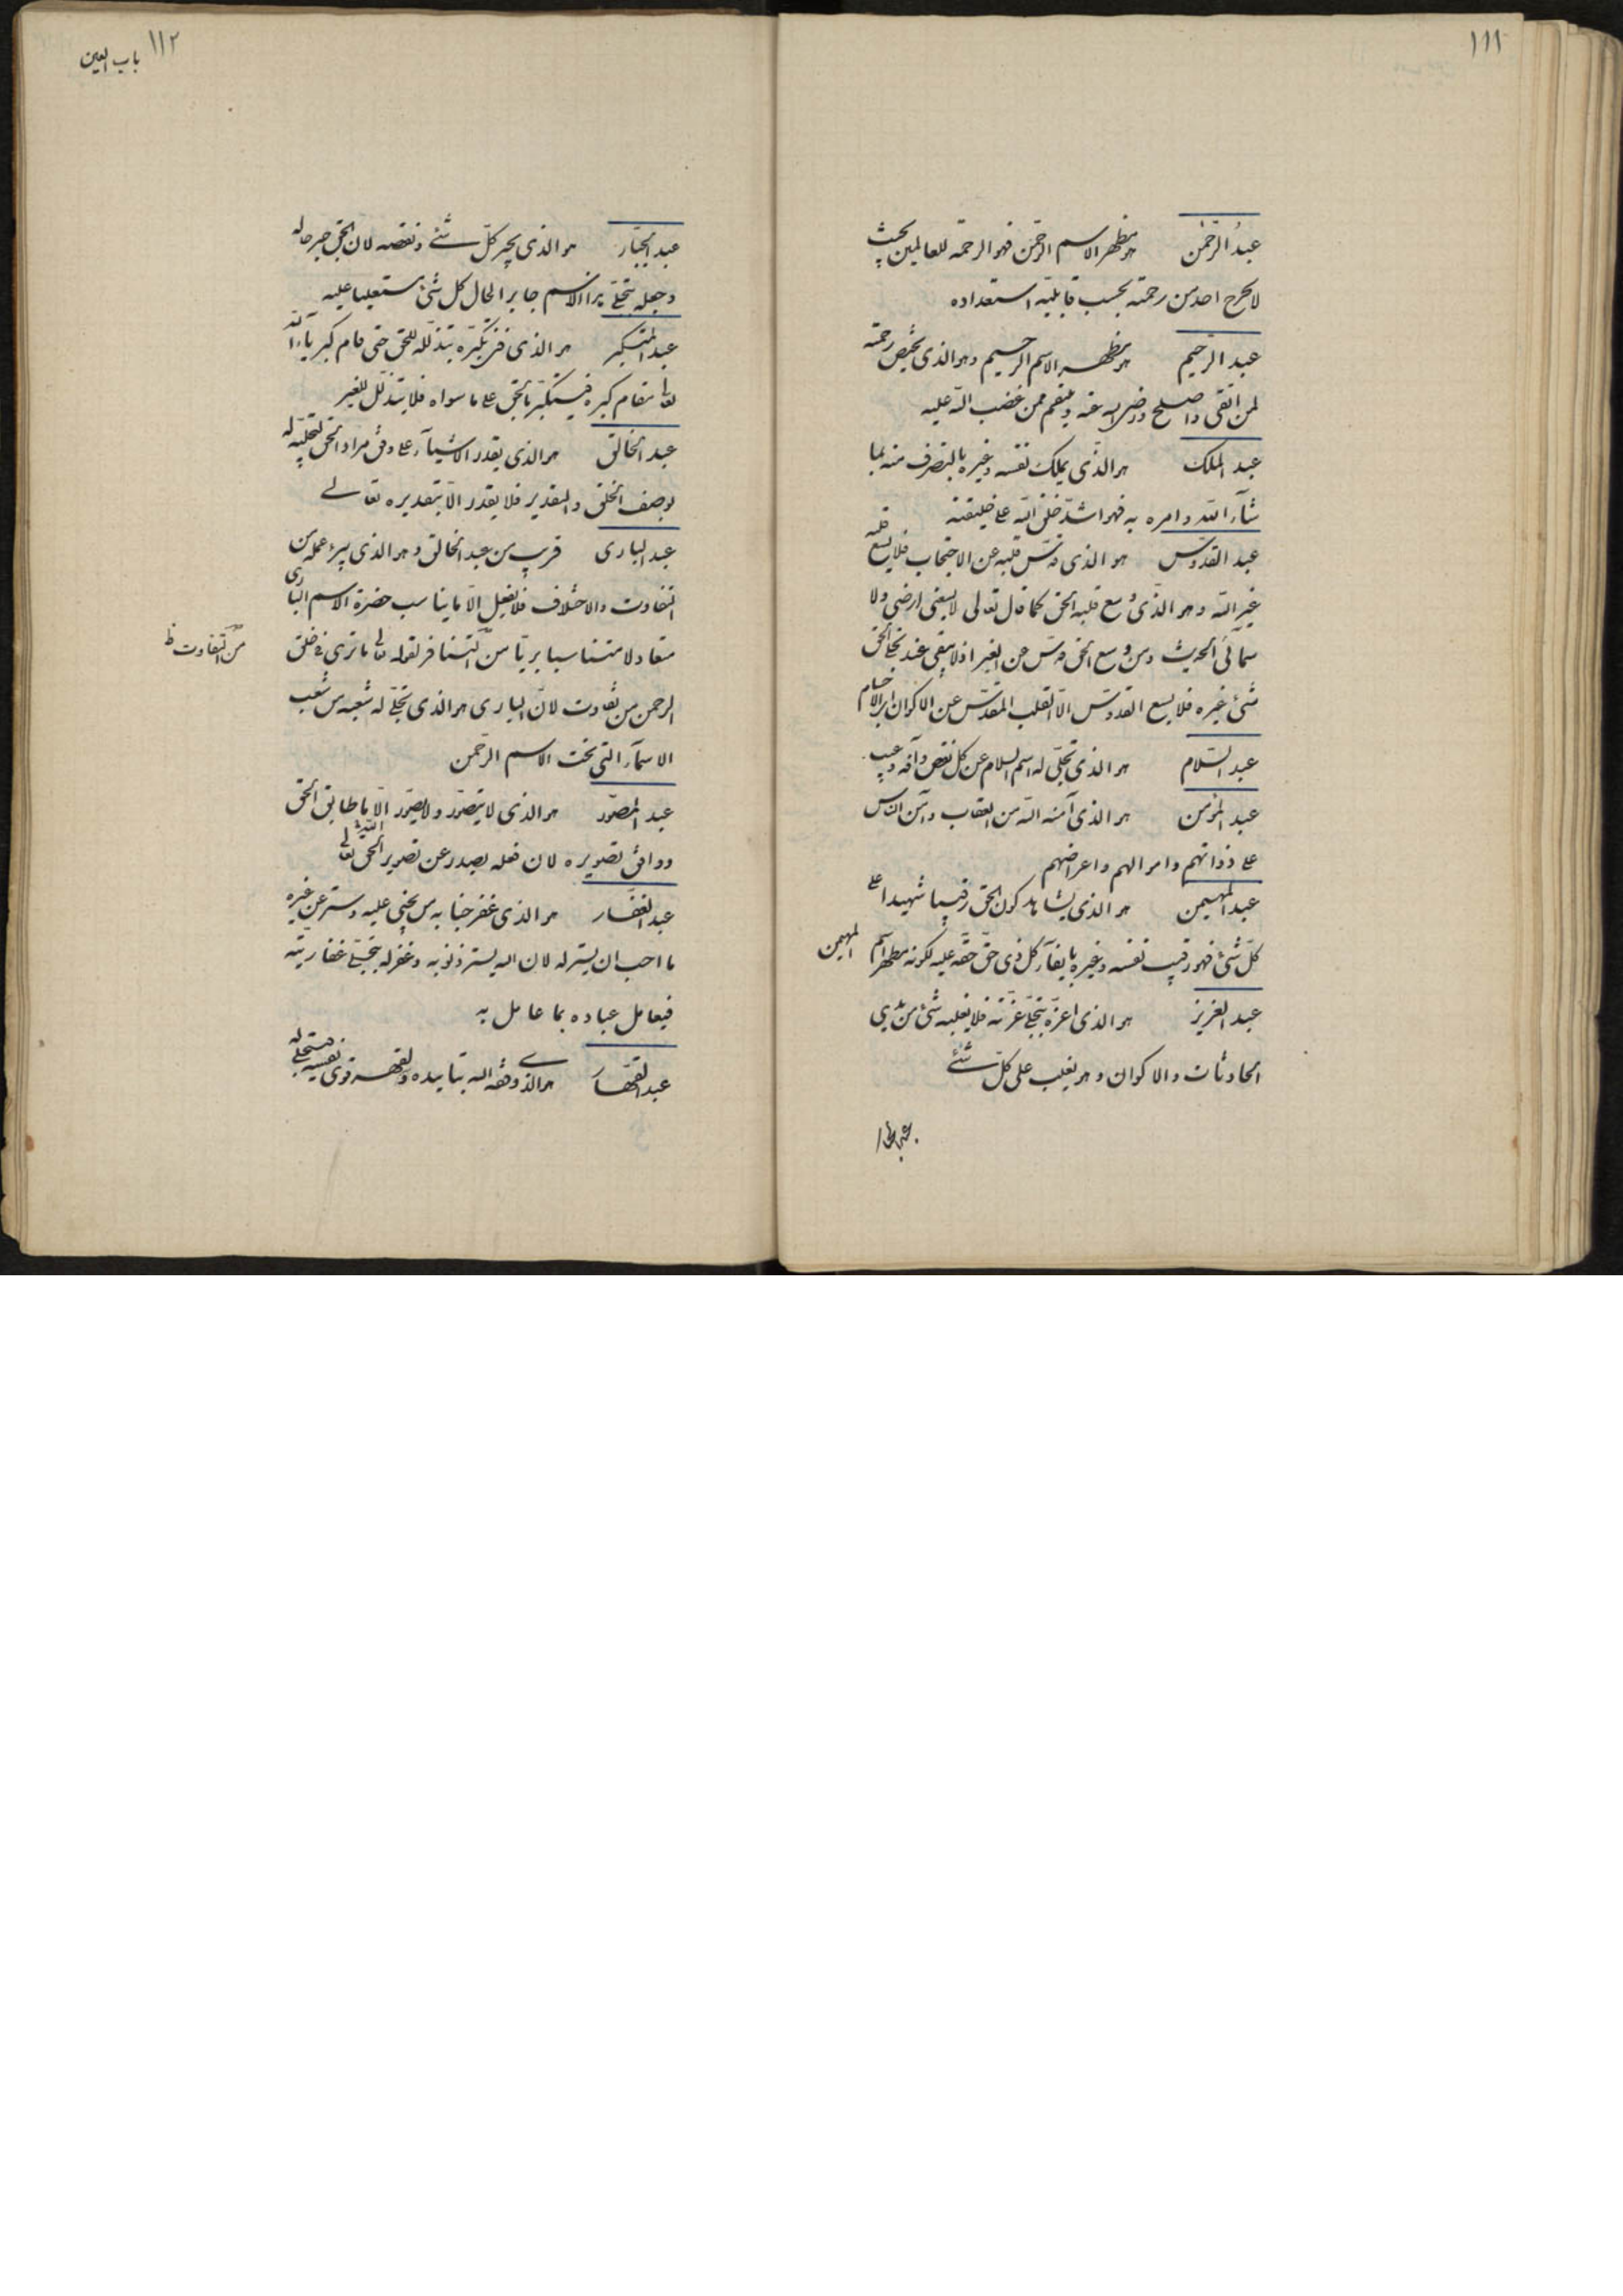 ١١١
عبدُ الرّحمٰن هو مظهر الاسم الرحمن فهو الرحمة للعالمين بحيث
لا يخرج احد من رحمته بحسب قابليّته استعداده
عبد الرّحيم هو مظهر الاسم الرحيم وهو الذى يخصّ رحمته
لمن اتقى واصلح ورضى الله عنه وينتقم ممن غضب الله عليه
عبد الملك هو الذى يملك نفسه وغيره بالتصرف منه بما
شآء الله وامره به فهو اشدّ خلق الله على خليقته
عبد القدّوس هو الذى قدّس قلبه عن الاحتجاب فلا يسع قلبه
غير الله وهو الذى وسع قلبه الحق كما قال تعالى لا يسعنى ارضى ولا
سمآئى الحديث ومن وسع الحق قدّس عن الغير اذ لا يبقى عند تجلّى الحق
شئ غيره فلا يسع القدوّس الّا القلب المقدّس عن الاكوان
عبد السّلام هو الذى تجلّى له اسم السلام عن كل نقص وآفة وعيب
عبد المؤمن هو الذى آمنه الله من العقاب وآمن الناس
على ذواتهم واموالهم واعراضهم
عبد المهيمن هو الذى يشاهد كون الحق رقيبا شهيدا على
كلّ شئ فهو رقيب نفسه وغيره بايفآء كل ذى حقّ حقّه عليه لكونه مظهر اسم المهيمن
عبد العزيز هو الذى اعزّه بتجلّى عزّته فلا يغلبه شئ من ايدى
الحادثات والاكوان وهو يغلب على كلّ شئ
عبد الجبار
١١٢ باب العين
عبد الجبّار هو الذى يجبر كلّ شئ ونقصه لان الحق جبر حاله
وجعله بتجلّى هذا الاسم جابر الحال كل شئ مستعليا عليه
عبد المتكبّر هو الذى فنى تكبّره بتذلّله للحق حتى قام كبريآء الله
تعالى مقام كبره فيتكبّر بالحق على ما سواه فلا يتذلّل للغير
عبد الخالق هو الذى يقدر الاشيآء على وفق مراد الحق لتجلّيه له
بوصف الخلق والتقدير فلا يقدر الّا بتقديره تعالى
عبد البارى قريب من عبد الخالق وهو الذى يبرئ عمله من
التفاوت والاختلاف فلا يفعل الّا ما يناسب حضرة الاسم البارى
متعادلا متناسبا بريّا من التنافر لقوله تعالى ما ترى فى خلق
من التفاوت ظ
الرحمن من تفاوت لانّ البارى هو الذى تجلّى له شعبه من شعب
الاسمآء التى تحت الاسم الرّحمن
عبد المصوّر هو الذى لا يتصوّر ولا يصوّر الّا ما طابق الحق
ووافق تصويره لان فعله يصدر عن تصوير الحق تعالى
عبد الغفّار هو الذى غفر جنايه من يجنى عليه وستر عن غيره
ما احب ان يستر له لان الله يستر ذنوبه وغفر له بتجلّى غفّاريّته
فيعامل عباده بما عامل به
عبد القهّار هو الذى وفقه الله بتأييده لقهر قوى نفسه